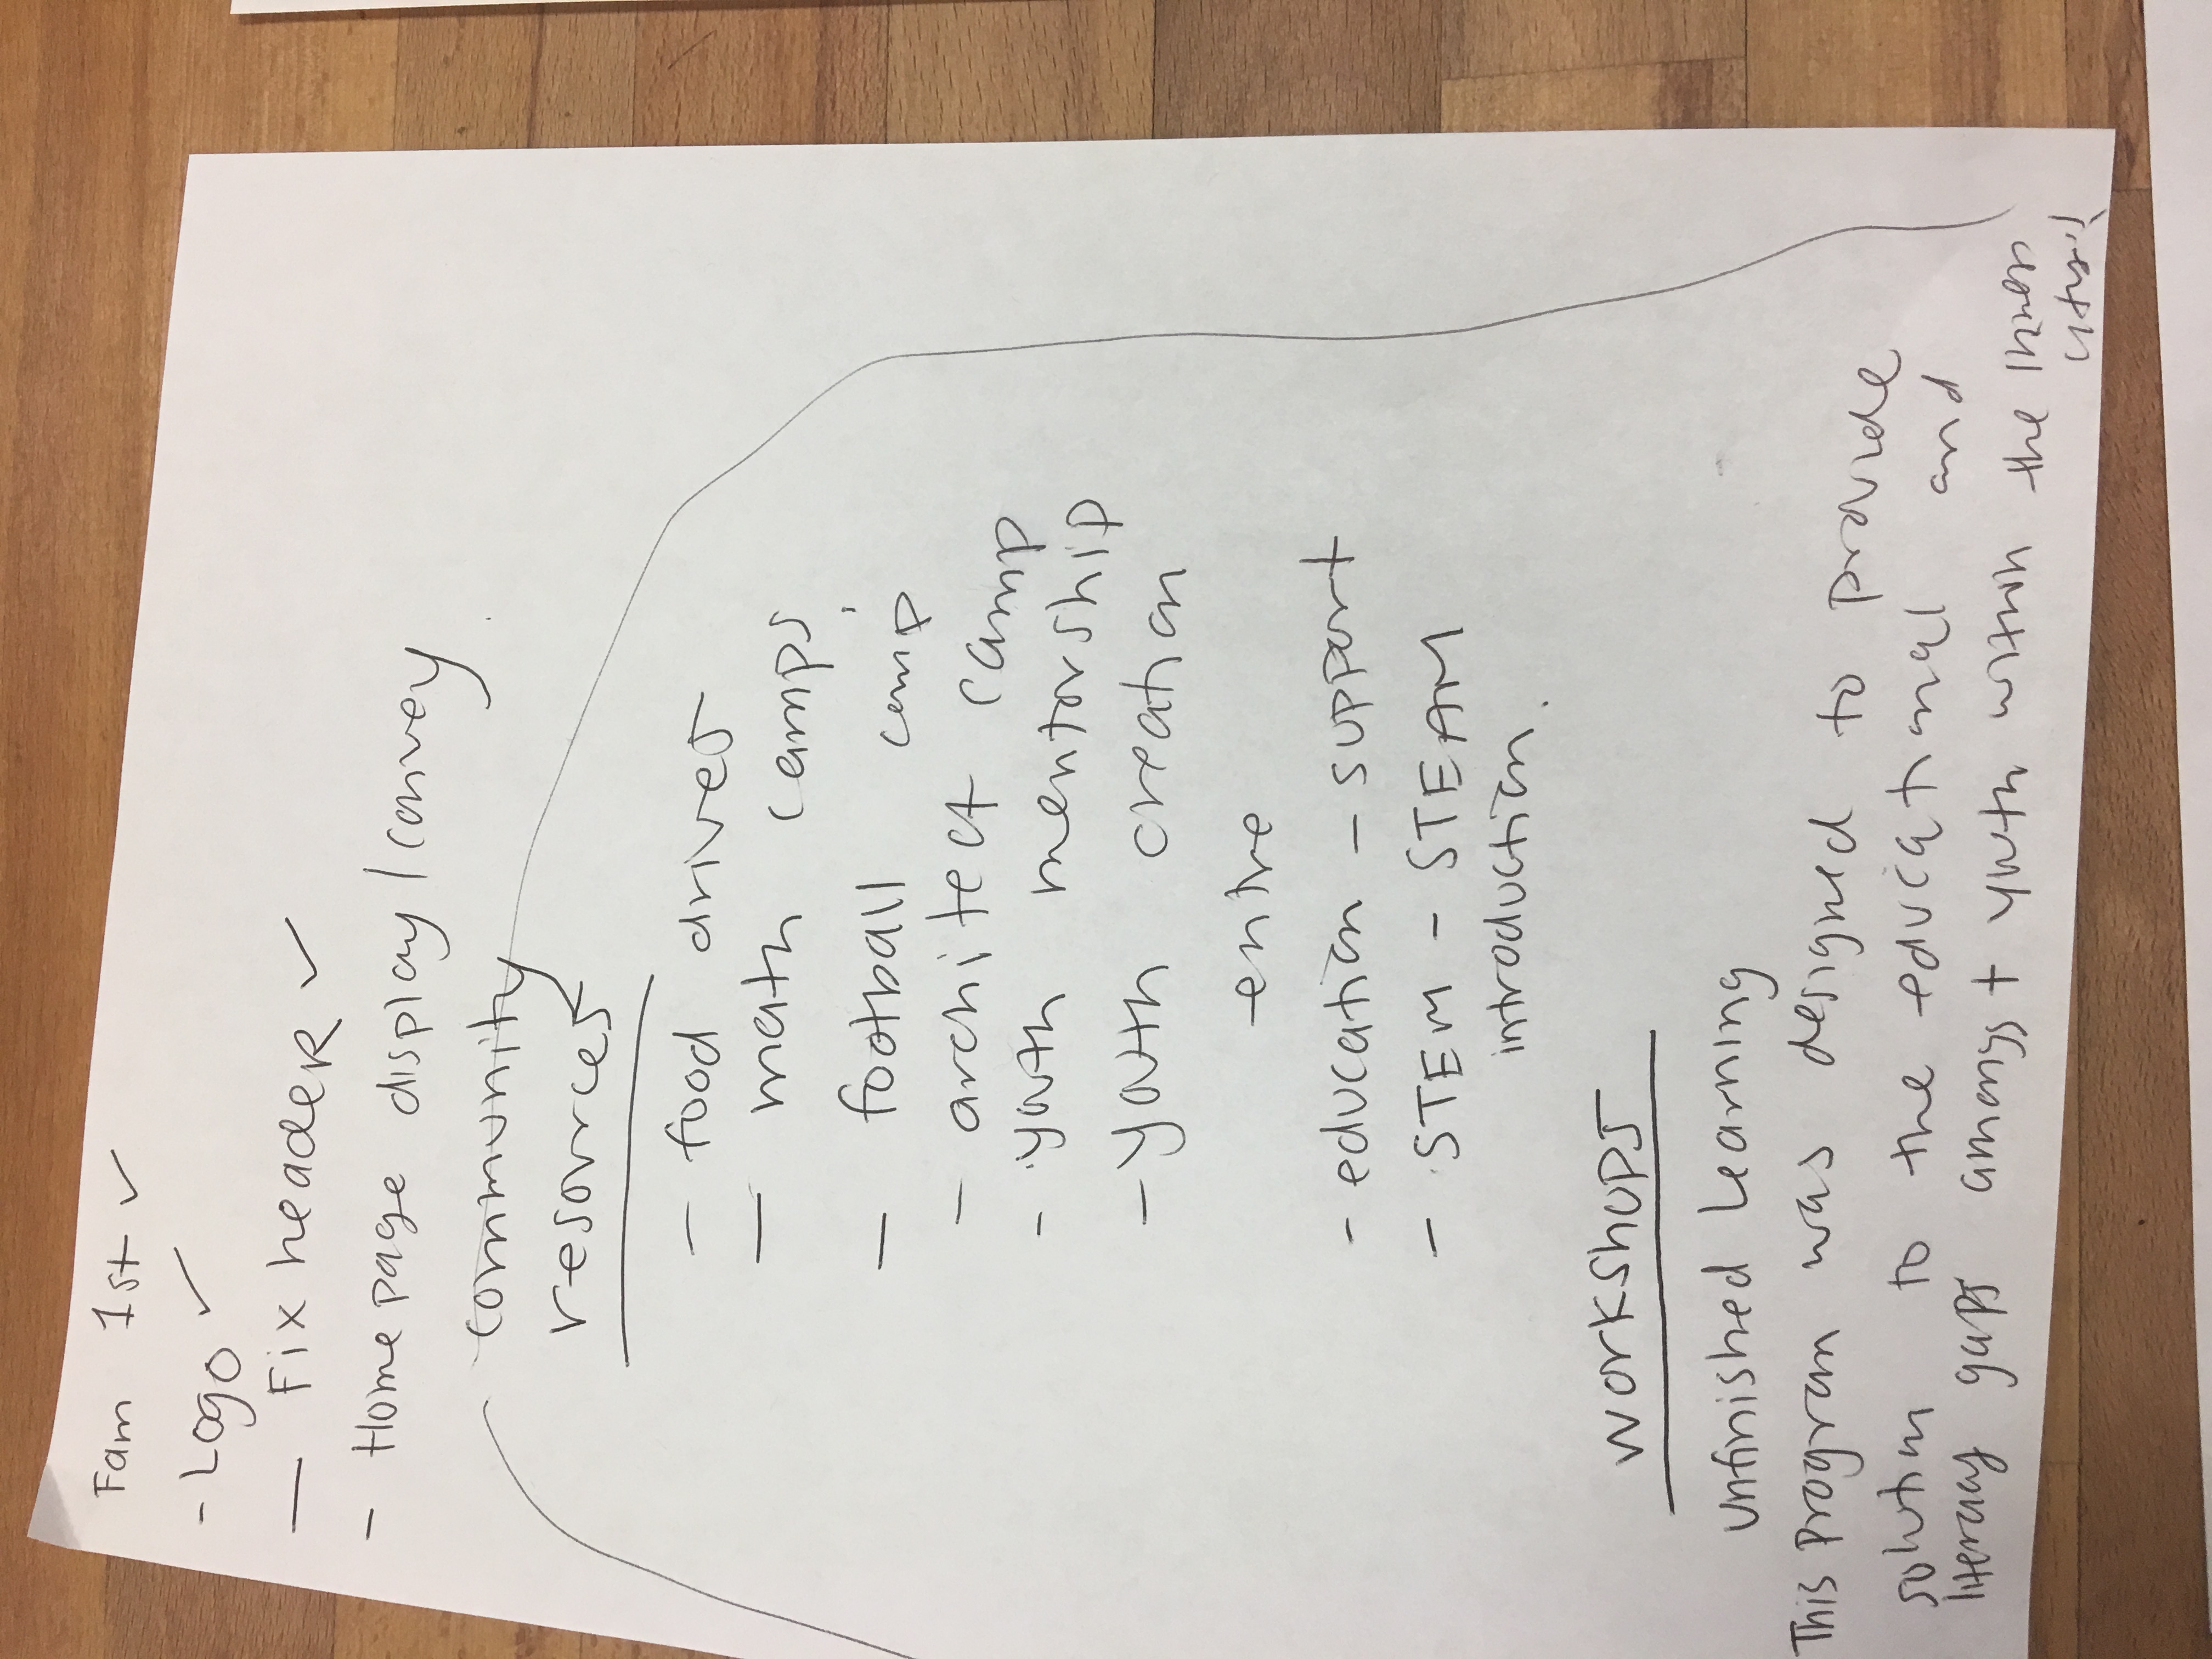 Fam 1st ✓
- Logo ✓
— Fix header ✓
- Home page display / convey
community
resources
- food drives
— math camps
— football camp
- architect camp
- youth mentorship
- youth creation
entre
- education - support
- STEM - STEAM
introduction.
Workshops
Unfinished Learning
This program was designed to provide
solution to the educational and
literacy gaps amongst youth within the inner
city!